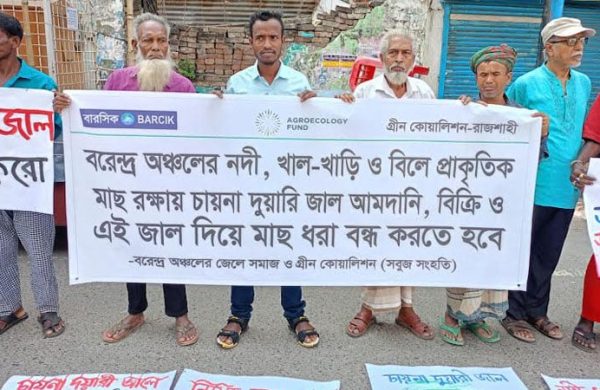 বারসিক BARCIK
AGROECOLOGY
FUND
গ্রীন কোয়ালিশন-রাজশাহী
বরেন্দ্র অঞ্চলের নদী, খাল-খাড়ি ও বিলে প্রাকৃতিক
মাছ রক্ষায় চায়না দুয়ারি জাল আমদানি, বিক্রি ও
এই জাল দিয়ে মাছ ধরা বন্ধ করতে হবে
-বরেন্দ্র অঞ্চলের জেলে সমাজ ও গ্রীন কোয়ালিশন (সবুজ সংহতি)
জাল
করো
চায়না দুয়ারী জালে
চায়না দুয়ারী জাল